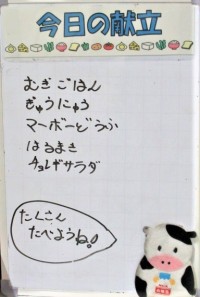 今日の献立
むぎごはん
ぎゅうにゅう
マーボーどうふ
はるまき
チョレギサラダ
たくさん
たべようね!